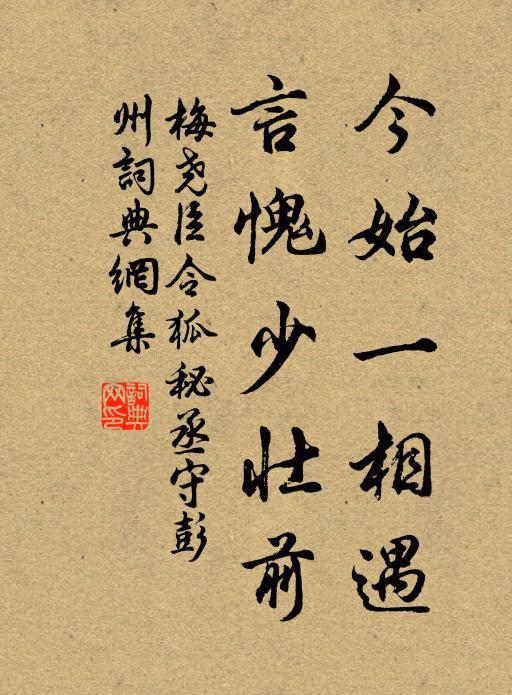 今始一相遇
言愧少壮前
梅尧臣令狐秘丞守彭
州詞典網集
詞典
网印